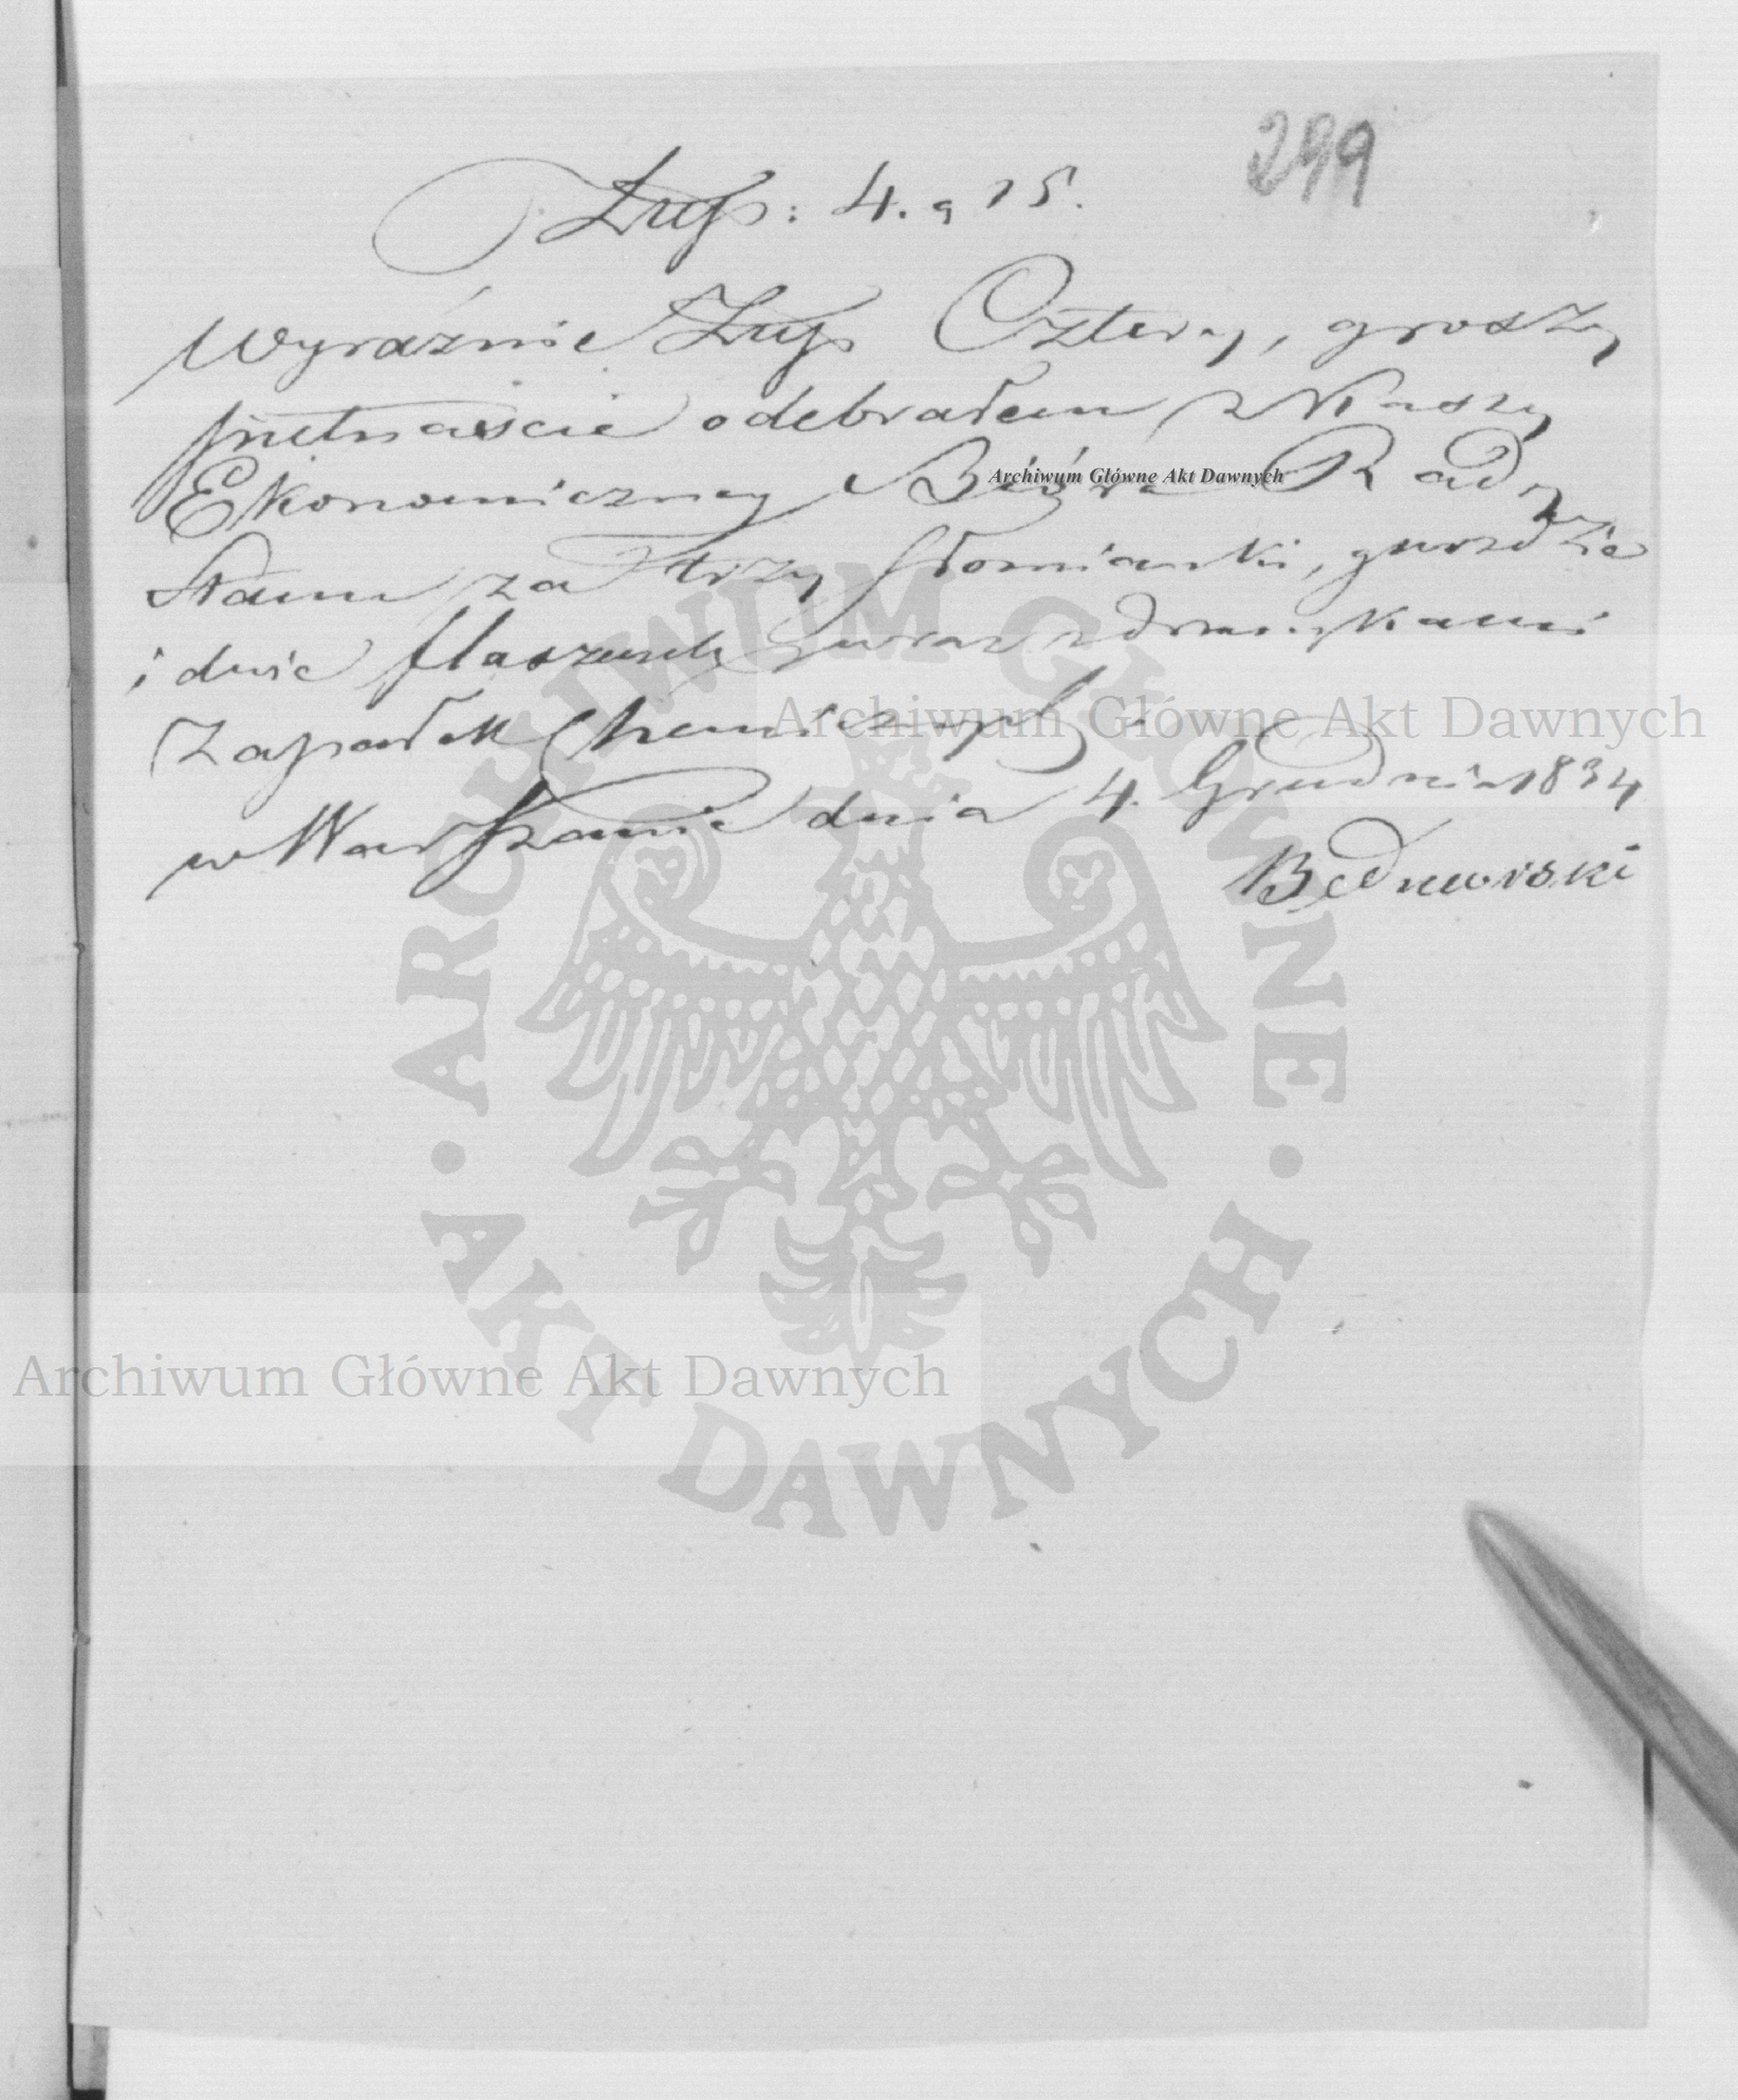 299
Złyp: 4. g 15.
Wyraźnie Złyp Cztery, groszy
pietnaście odebrałem z Kassy
Ekonomiczney Bióra Rady
Stanu za trzy słomianki, gwozdzie
i dwie flaszeczki wraz z
Zapałek Chemicznych.
w Warszawie dnia 4. Grudnia 1834
Bednawski
Archiwum Główne Akt Dawnych
Archiwum Główne Akt Dawnych
Archiwum Główne Akt Dawnych
· ARCHIWUM GŁÓWNE ·
AKT DAWNYCH